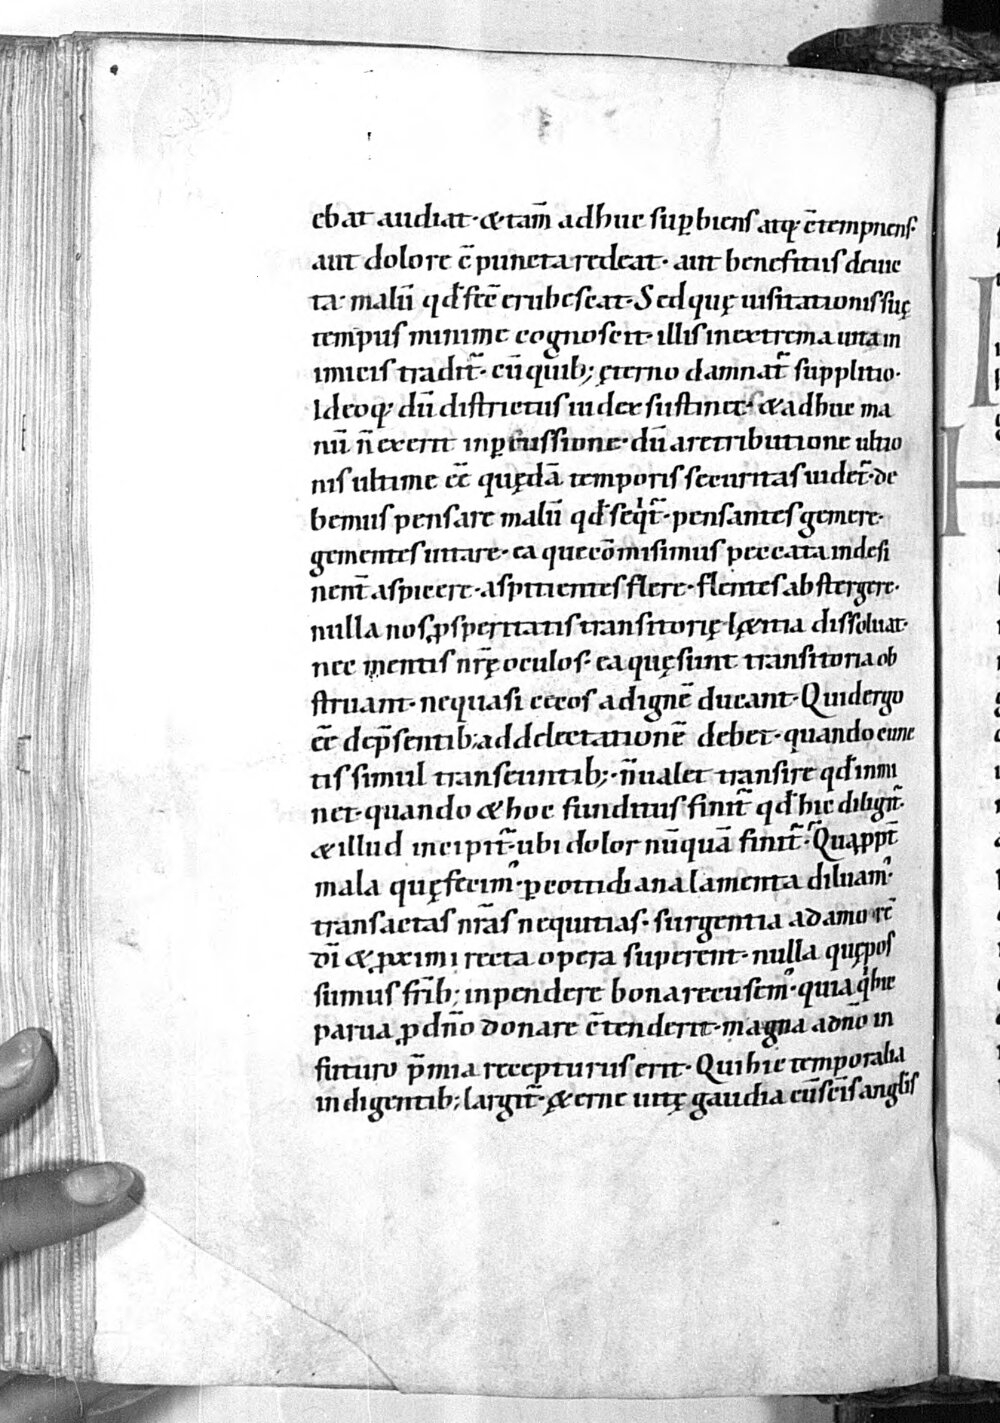 ebat audiat· &tam̄ adhuc sup̱biens atq; c̄tempnens·
aut dolore c̄puncta redeat· aut benefitiis deuic
ta· malū qd̄ fec̄ erubescat· Sed quę uisitationis suę
tempus minime cognoscit· illis in extrema uita in
imicis tradit᷑· cū quib; ęterno damnat᷑ supplitio·
Ideoq; dū districtus iudex sustinet· & adhuc ma
nū n̄ exerit in p̱cussione· dū a retributione ultio
nis ultime ēē quędā temporis securitas uidet᷑· de
bemus pensare malū qd̄ seqͥt᷑· pensantes gemere·
gementes uitare· ea que cōmisimus peccata indesi
nent̄ aspicere· aspitientes flere· flentes abstergere·
nulla nos ꝓsperitatis transitorię lętitia dissoluat·
nec mentis nr̄ę oculos· ea quę sunt transitoria ob
struant· ne quasi cecos ad ignē ducant· Quid ergo
ēē de p̄sentib; ad delectationē debet· quando cunc
tis simul transeuntib;· n̄ ualet transire qd̄ inmi
net· quando & hoc funditus finit᷑ qd̄ hic diligit᷑·
& illud incipit᷑· ubi dolor nūquā finit᷑· Quapp̱t̄
mala quę fecim᷒· p̱ cottidiana lamenta diluam᷒·
transactas nr̄as nequitias· surgentia ad amorē
dī & ꝓximi recta opera superent· nulla quę pos
sumus fr̄ib; inpendere bona recusem᷒· quia qͥ hic
parua ꝓ dn̄o donare c̄tenderit· magna a dn̄o in
futuro p̄mia recepturus erit· Qui hic temporalia
indigentib; largit᷑· &erne uitę gaudia cū sc̄is angl̄is